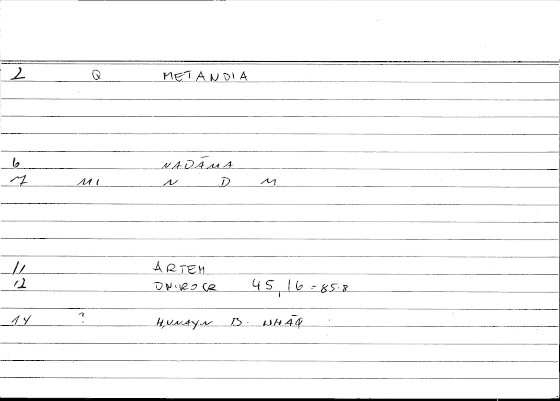 2 Q METANDIA
6 NADĀMA
7 MI N D M
11 ARTEM
12 ONIROCR 45,16 = 85.8
14 ? ḤUNAYN B. ISḤĀQ